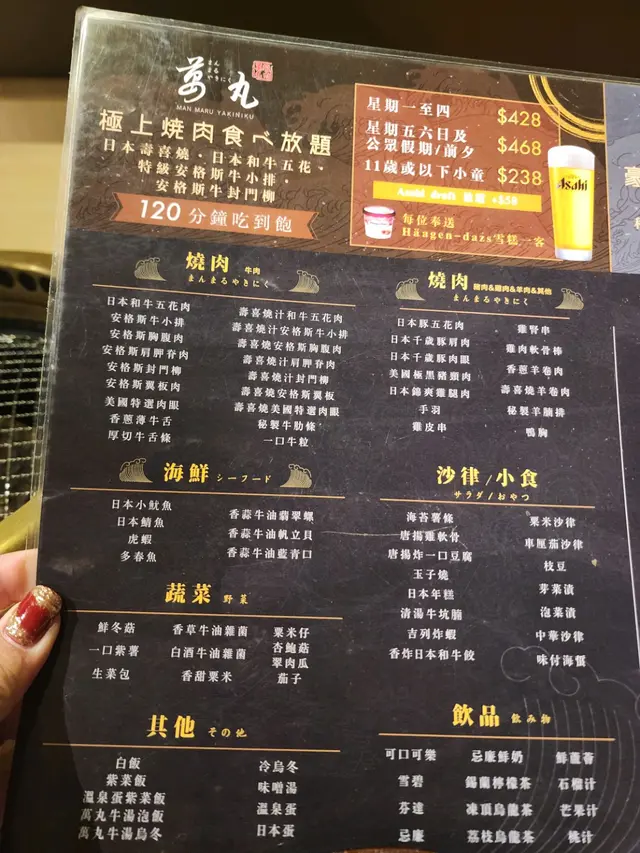 萬丸
まん
まる
やきにく
MAN MARU YAKINIKU
極上焼肉食べ放題
日本壽喜燒・日本和牛五花・
特級安格斯牛小排・
安格斯牛封門柳
120分鐘吃到飽
星期一至四 $428
星期五六日及
公眾假期/前夕 $468
11歲或以下小童 $238
Asahi draft 任飲 +$58
Asahi
每位奉送
Häagen-dazs雪糕一客
燒肉 牛肉
まんまるやきにく
日本和牛五花肉
安格斯牛小排
安格斯胸腹肉
安格斯肩胛脊肉
安格斯封門柳
安格斯翼板肉
美國特選肉眼
香蔥薄牛舌
厚切牛舌條
壽喜燒汁和牛五花肉
壽喜燒汁安格斯牛小排
壽喜燒安格斯胸腹肉
壽喜燒汁肩胛脊肉
壽喜燒汁封門柳
壽喜燒安格斯翼板
壽喜燒美國特選肉眼
秘製牛肋條
一口牛粒
燒肉 豬肉&雞肉&羊肉&其他
まんまるやきにく
日本豚五花肉
日本千歲豚肩肉
日本千歲豚肉眼
美國極黑豬頸肉
日本錦爽雞腿肉
手羽
雞皮串
雞腎串
雞肉軟骨棒
香蔥羊卷肉
壽喜燒羊卷肉
秘製羊腩排
鴨胸
海鮮 シーフード
日本小魷魚
日本鯖魚
虎蝦
多春魚
香蒜牛油翡翠螺
香蒜牛油帆立貝
香蒜牛油藍青口
沙律/小食
サラダ/おやつ
海苔薯條
唐揚雞軟骨
唐揚炸一口豆腐
玉子燒
日本年糕
清湯牛坑腩
吉列炸蝦
香炸日本和牛餃
粟米沙律
車厘茄沙律
枝豆
芽菜漬
泡菜漬
中華沙律
味付海蜇
蔬菜 野菜
鮮冬菇
一口紫薯
生菜包
香草牛油雜菌
白酒牛油雜菌
香甜粟米
粟米仔
杏鮑菇
翠肉瓜
茄子
其他 その他
白飯
紫菜飯
溫泉蛋紫菜飯
萬丸牛湯泡飯
萬丸牛湯烏冬
冷烏冬
味噌湯
溫泉蛋
日本蛋
飲品 飲み物
可口可樂
雪碧
芬達
忌廉
忌廉鮮奶
錫蘭檸檬茶
凍頂烏龍茶
荔枝烏龍茶
鮮蘆薈
石榴汁
芒果汁
桃汁